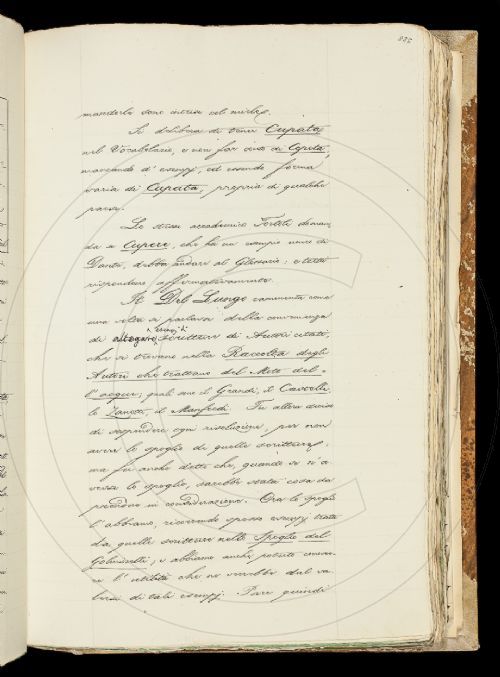 mandorle sono intrise col miele.
Si delibera di tener Cupata
nel Vocabolario, e non far conto di Copeta,
mancando d'esempj, ed essendo forma
varia di Cupata, propria di qualche
paese.
Lo stesso accademico Tortoli doman-
da se Cupere, che ha un esempio unico di
Dante, debba andare al Glossario: e tutti
rispondono affermativamente.
Il Del Lungo rammenta come
una volta si parlava della convenienza
di allegare esempj di scritture di Autori citati,
che si trovano nella Raccolta degli
Autori che trattano del Moto del-
l'acque, quali sono il Grandi, il Castelli,
lo Zanotti, il Manfredi. Fu allora deciso
di sospendere ogni risoluzione, per non
avere lo spoglio di quelle scritture;
ma fu anche detto che, quando se n'a-
vesse lo spoglio, sarebbe stata cosa da
prendere in considerazione. Ora lo spoglio
l'abbiamo, ricorrendo spesso esempj tratti
da quelle scritture nello Spoglio del
e abbiamo anche potuto conosce-
re l'utilità che ne verrebbe dal va-
lersi di tali esempj. Pare quindi